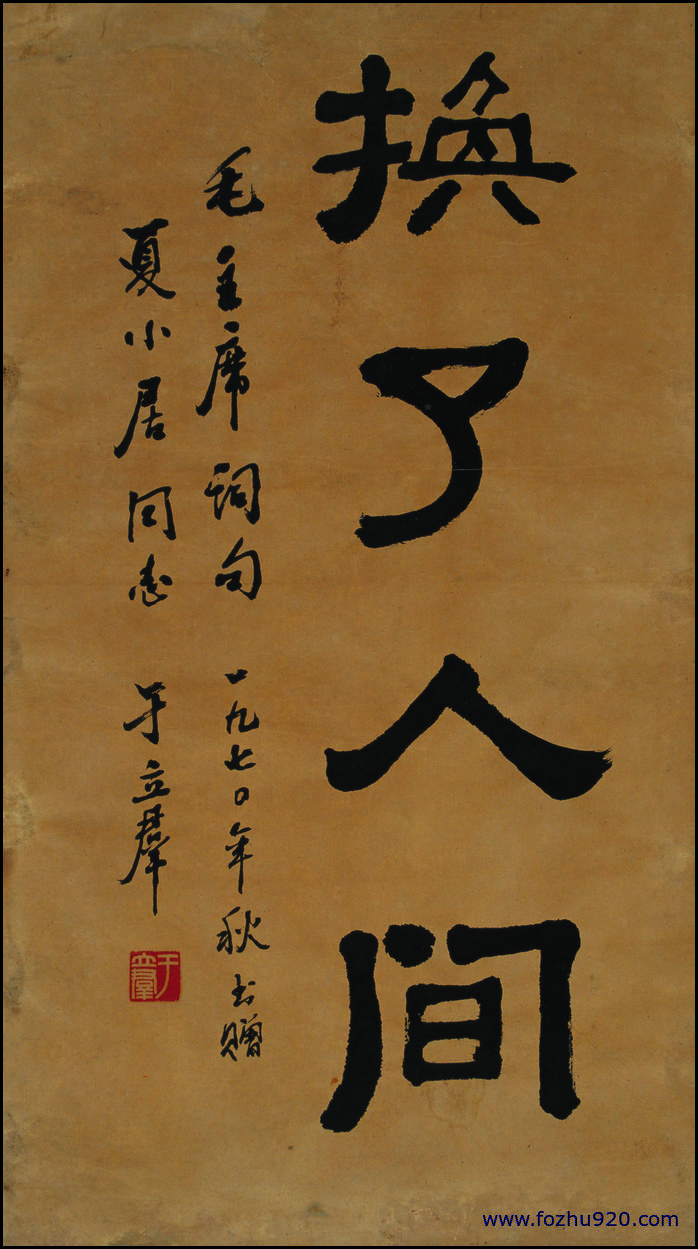 换了人间
毛主席词句 一九七〇年秋书赠
夏小居同志 于立群
于立群
www.fozhu920.com